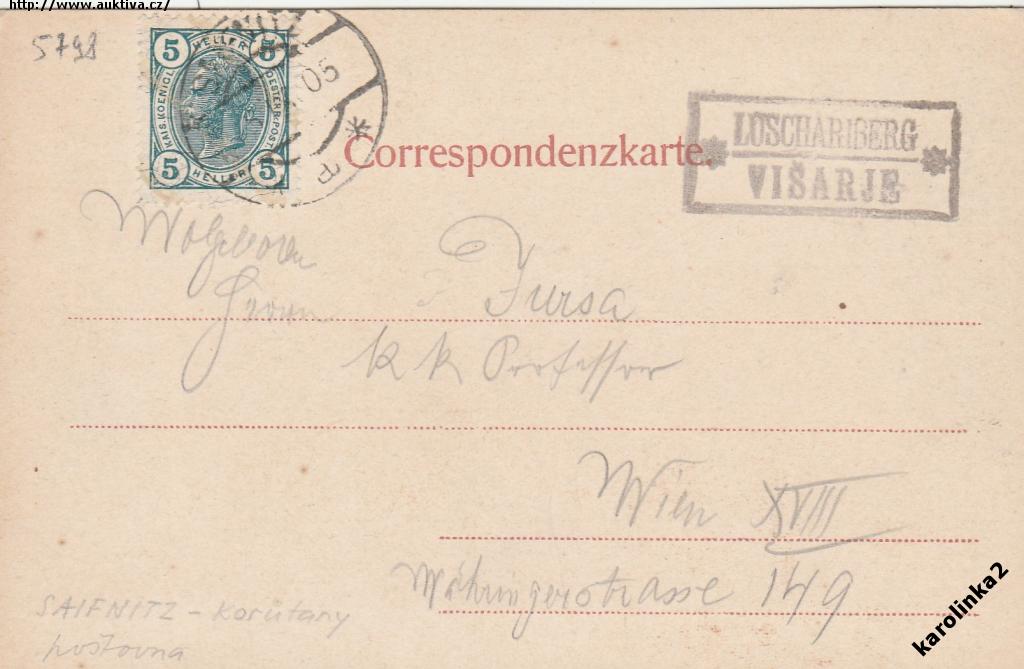 http://www.auktiva.cz/
5798
5 HELLER 5
KAIS. KOENIGL. OESTERR. POST
5 HELLER 5
05
Correspondenzkarte.
LUSCHARIBERG
VIŠARJE
Wolgeboren
Herrn Jursa
k k Professor
Wien XVIII
Währingerstrasse 149
SAIFNITZ - Korutany
poštovna
karolinka2